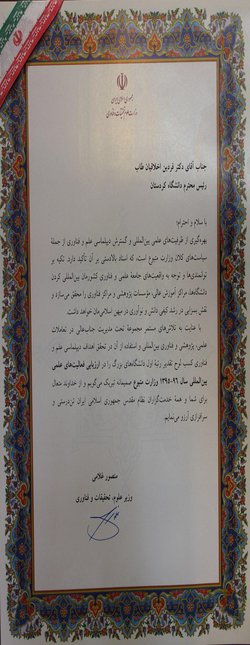 جمهوری اسلامی ایران
وزارت علوم، تحقیقات و فناوری
جناب آقای دکتر فردین اخلاقیان طاب
رئیس محترم دانشگاه کردستان
با سلام و احترام؛
بهره‌گیری از ظرفیت‌های علمی بین‌المللی و گسترش دیپلماسی علم و فناوری از جملهٔ
سیاست‌های کلان وزارت متبوع است، که اسناد بالادستی بر آن تأکید دارد. تکیه بر
توانمندی‌ها و توجه به واقعیت‌های جامعهٔ علمی و فناوری کشورمان بین‌المللی کردن
دانشگاه‌ها، مراکز آموزش عالی، مؤسسات پژوهشی و مراکز فناوری را محقق می‌سازد و
نقش بسزایی در رشد کیفی دانش و نوآوری در میهن اسلامی‌مان خواهد داشت.
با عنایت به تلاش‌های مستمر مجموعهٔ تحت مدیریت جناب‌عالی در تعاملات
علمی، پژوهشی و فناوری بین‌المللی و استفاده از آن در تحقق اهداف دیپلماسی علم و
فناوری کسب لوح تقدیر رتبهٔ اول دانشگاه‌های بزرگ را در ارزیابی فعالیت‌های علمی
بین‌المللی سال ۹۶-۱۳۹۵ وزارت متبوع صمیمانه تبریک می‌گویم و از خداوند متعال
برای شما و همهٔ خدمت‌گزاران نظام مقدس جمهوری اسلامی ایران تن‌درستی و
سرافرازی آرزو می‌نمایم.
منصور غلامی
وزیر علوم، تحقیقات و فناوری